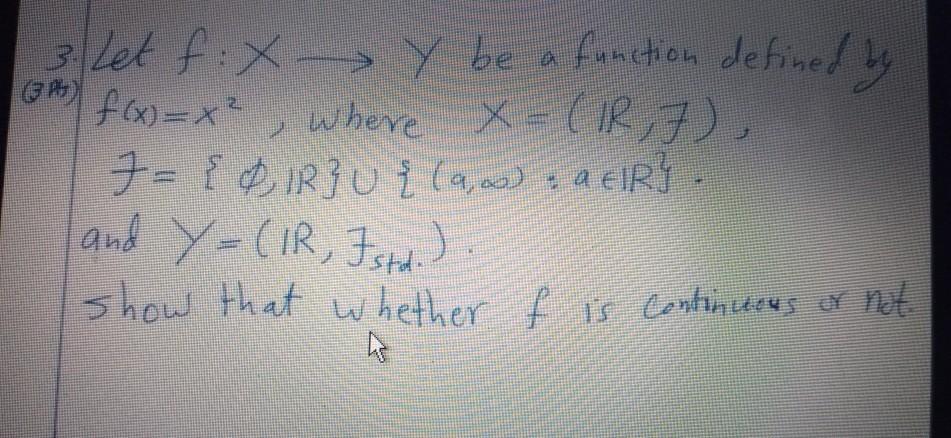 3. Let f : X → Y be a function defined by
(3 Pts) f(x) = x², where X = (ℝ, ℱ),
ℱ = { ∅, ℝ } ∪ { (a, ∞) : a ∈ ℝ }.
and Y = (ℝ, ℱstd.).
show that whether f is continuous or not.